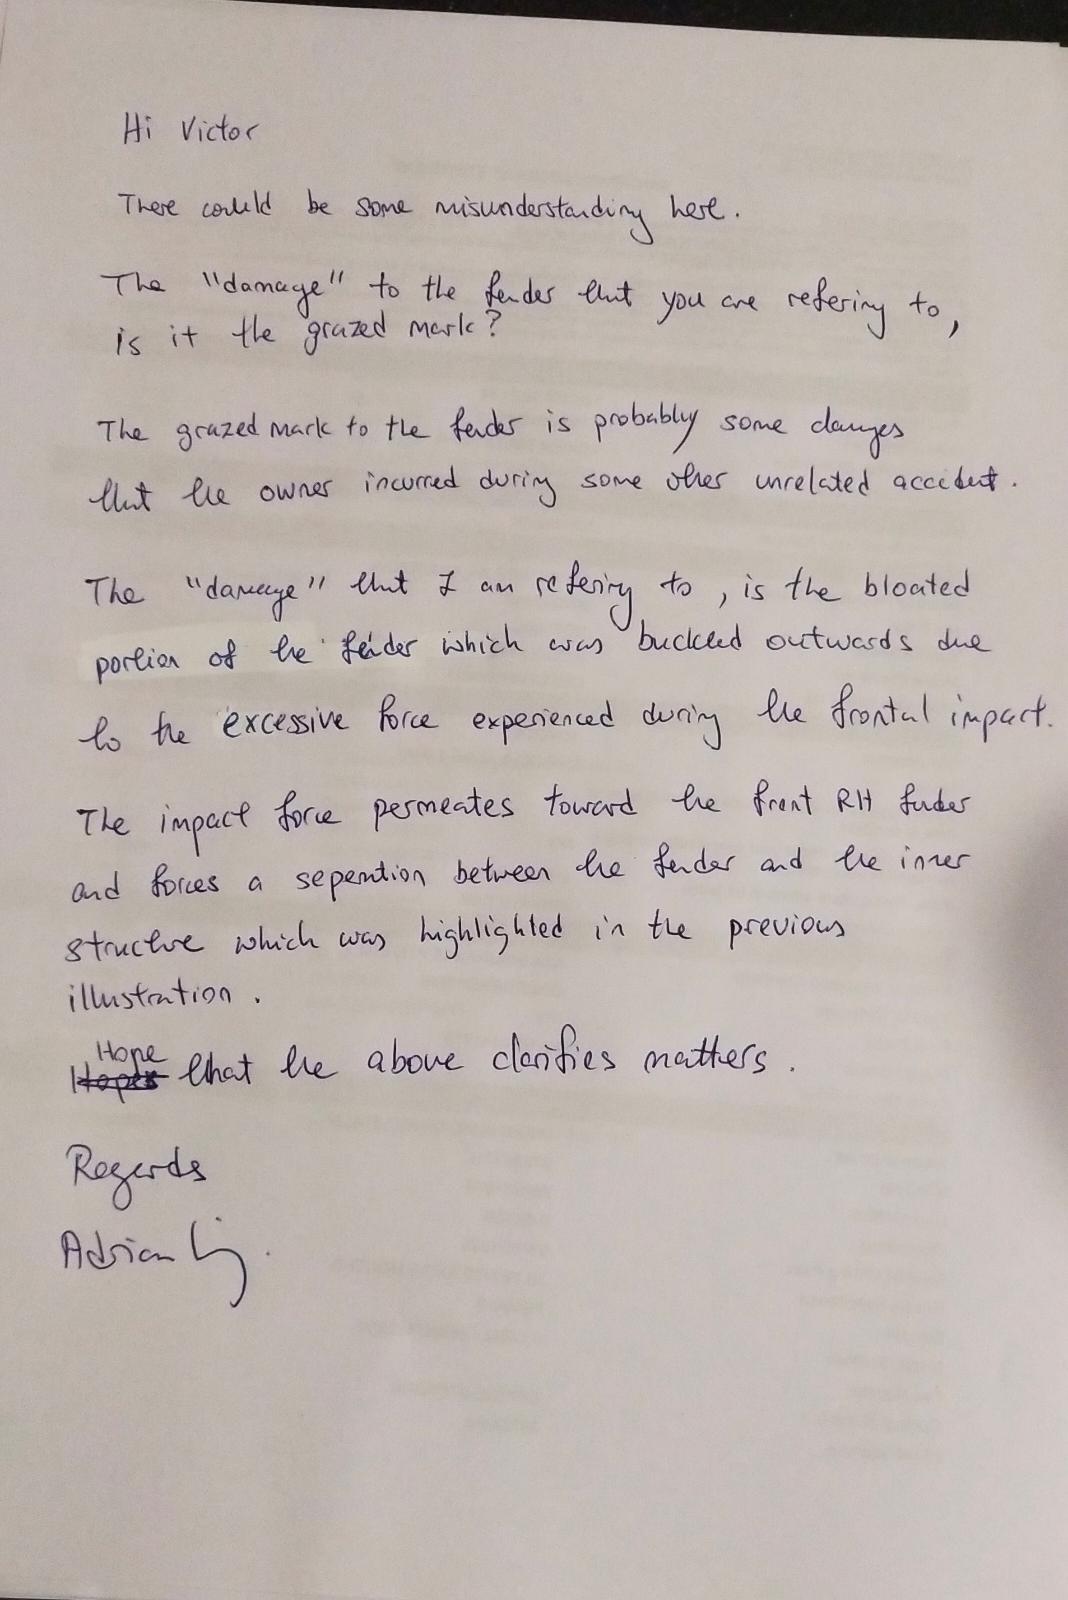 Hi Victor
There could be some misunderstanding here.
The "damage" to the fender that you are refering to,
is it the grazed mark?
The grazed mark to the fender is probably some damges
that the owner incurred during some other unrelated accident.
The "damage" that I am refering to, is the bloated
portion of the fender which was buckled outwards due
to the excessive force experienced during the frontal impact.
The impact force permeates toward the front RH fender
and forces a seperation between the fender and the inner
structure which was highlighted in the previous
illustration.
Hope
that the above clarifies matters.
Regards
Adrian